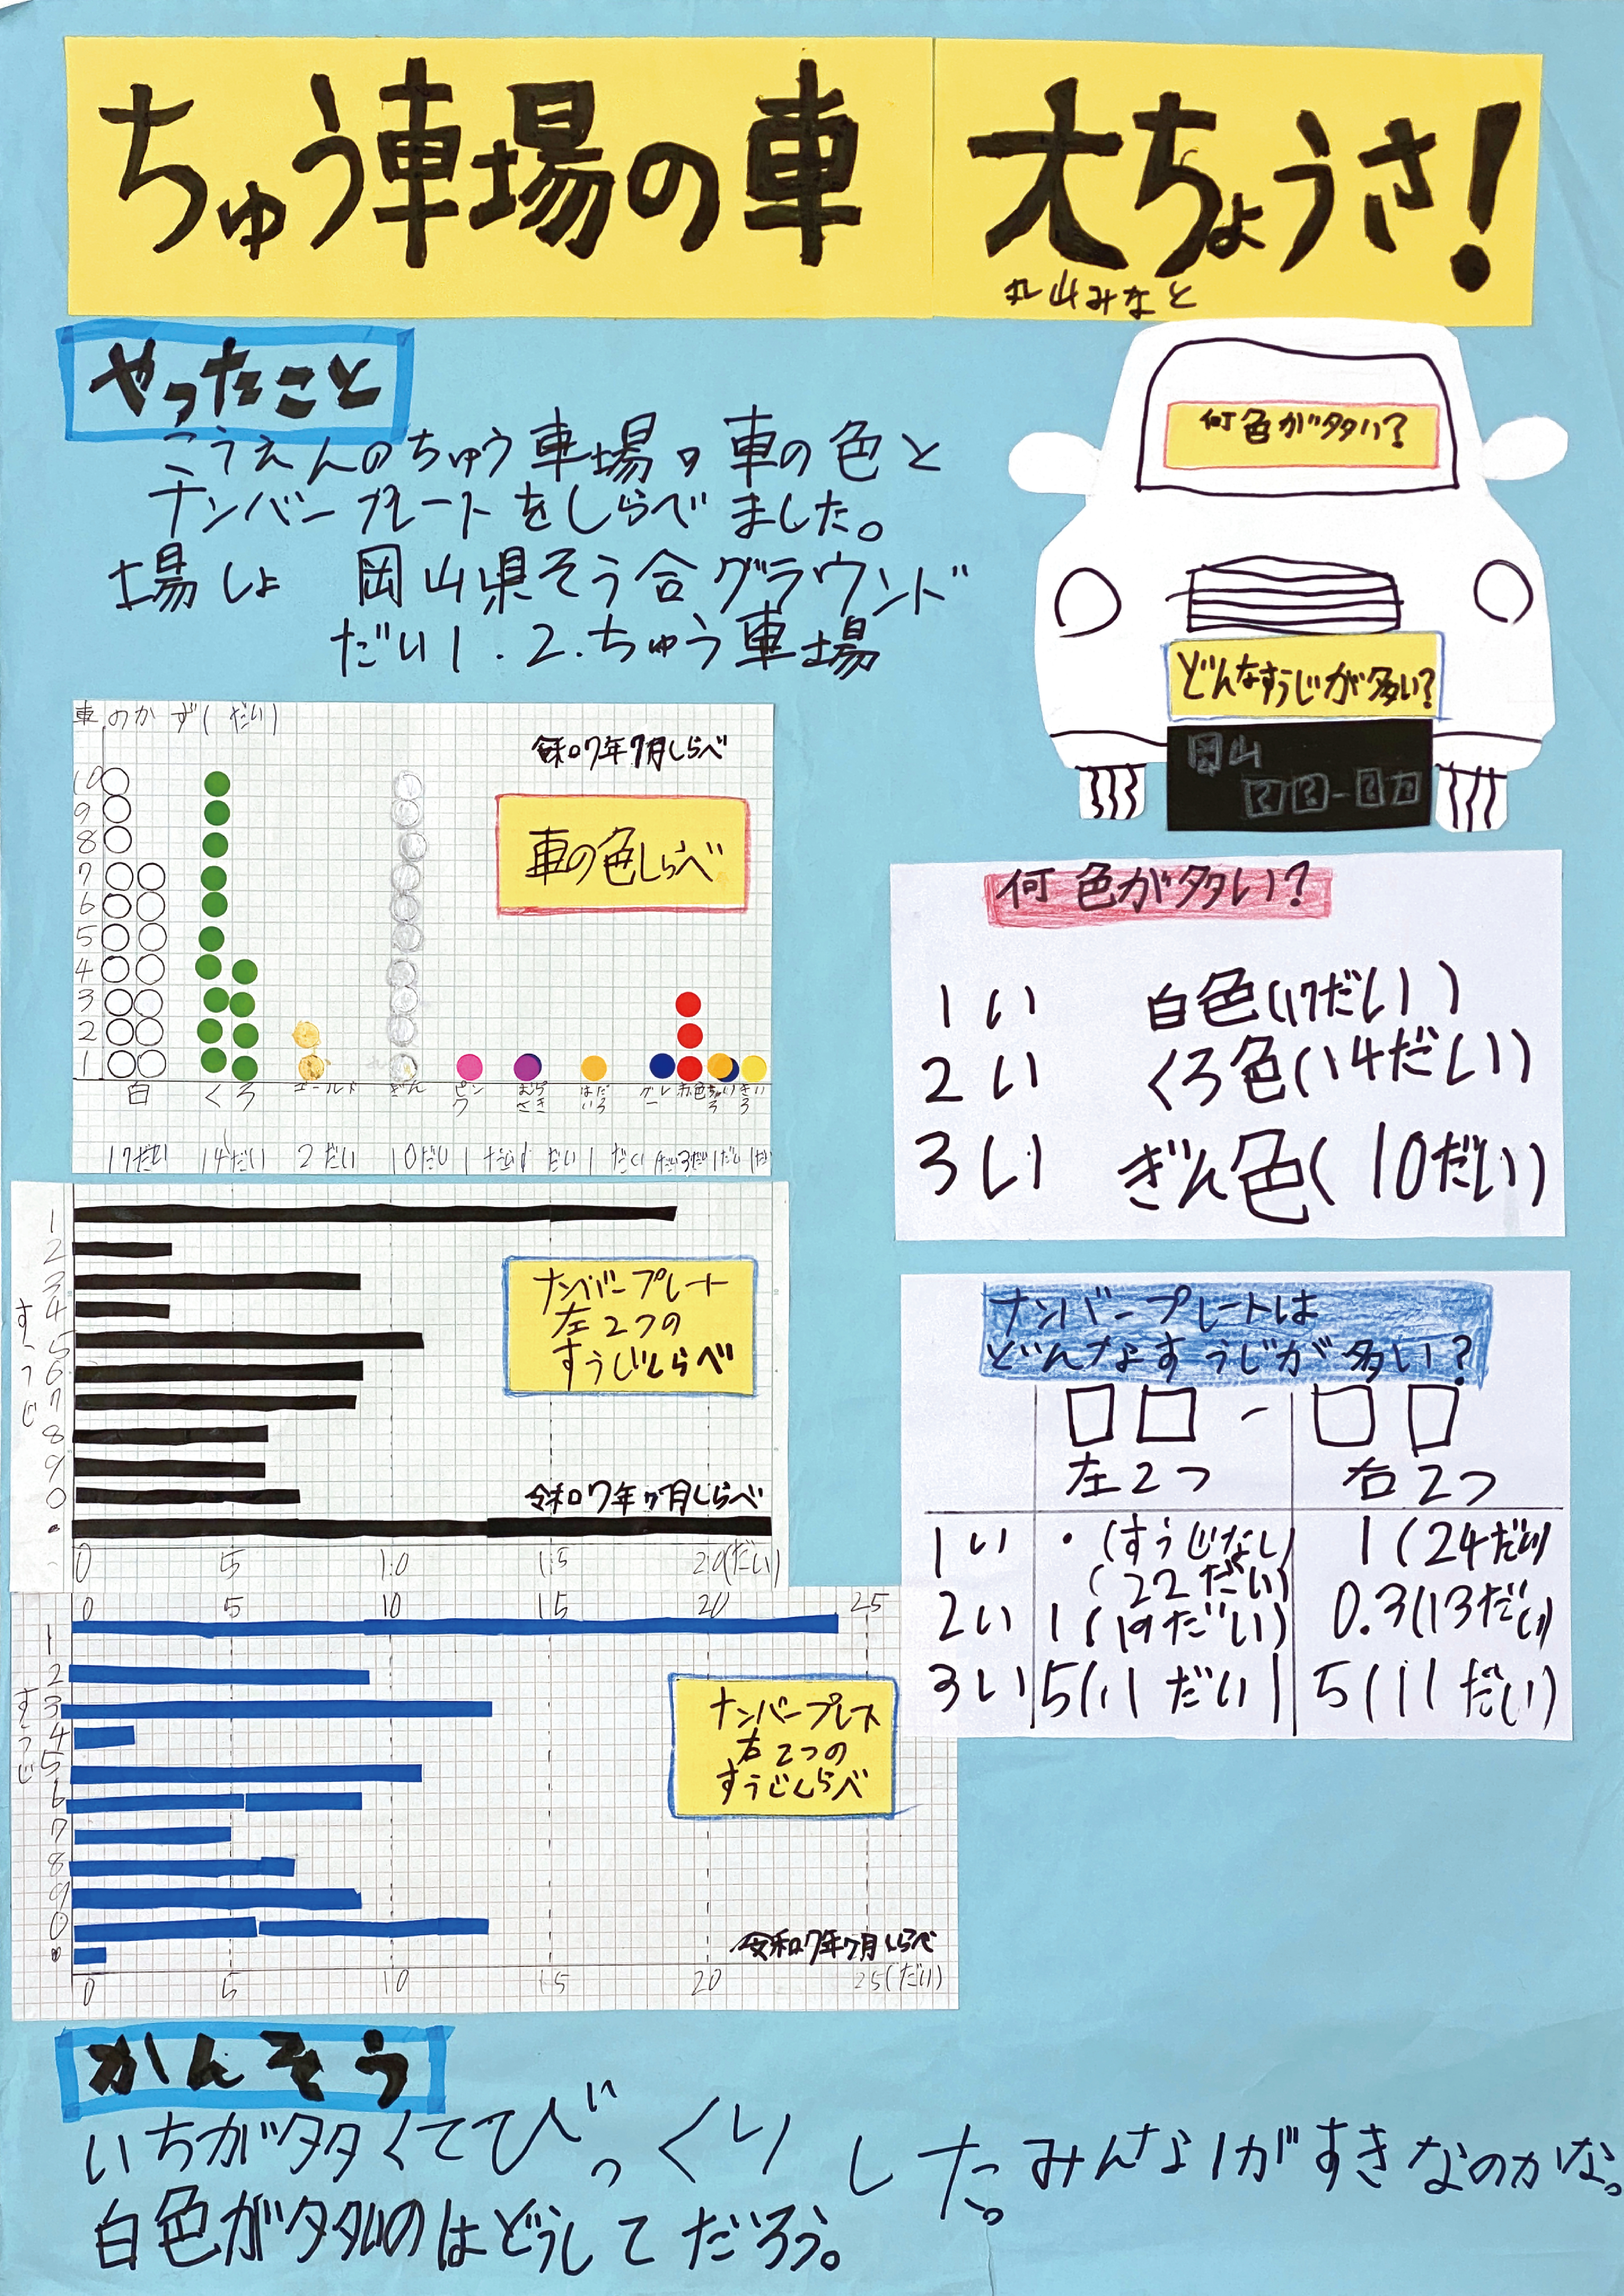 ちゅう車場の車 大ちょうさ!
丸山みなと
やったこと
こうえんのちゅう車場の車の色と
ナンバープレートをしらべました。
場しょ 岡山県そう合グラウンド
だい1.2.ちゅう車場
何色が多い?
どんなすうじが多い?
岡山
??-??
車のかず(だい)
令和7年7月しらべ
車の色しらべ
10
9
8
7
6
5
4
3
2
1
白 くろ ゴールド ぎん ピンク むらさき はだいろ グレー 赤色 ちゃいろ きいろ
17だい 14だい 2だい 10だい 1だい 1だい 1だい 1だい 3だい 1だい 1だい
何色が多い?
1い 白色(17だい)
2い くろ色(14だい)
3い ぎん色(10だい)
すうじ
1
2
3
4
5
6
7
8
9
0
・
ナンバープレート
左2つの
すうじしらべ
令和7年7月しらべ
0 5 10 15 20(だい)
ナンバープレートは
どんなすうじが多い?
□□-□□
左2つ 右2つ
1い ・(すうじなし) 1(24だい)
(22だい)
2い 1(19だい) 0.3(13だい)
3い 5(11だい) 5(11だい)
0 5 10 15 20 25
すうじ
1
2
3
4
5
6
7
8
9
0
・
ナンバープレート
右2つの
すうじしらべ
令和7年7月しらべ
0 5 10 15 20 25(だい)
かんそう
いちが多くてびっくりした。みんな1がすきなのかな。
白色が多いのはどうしてだろう。